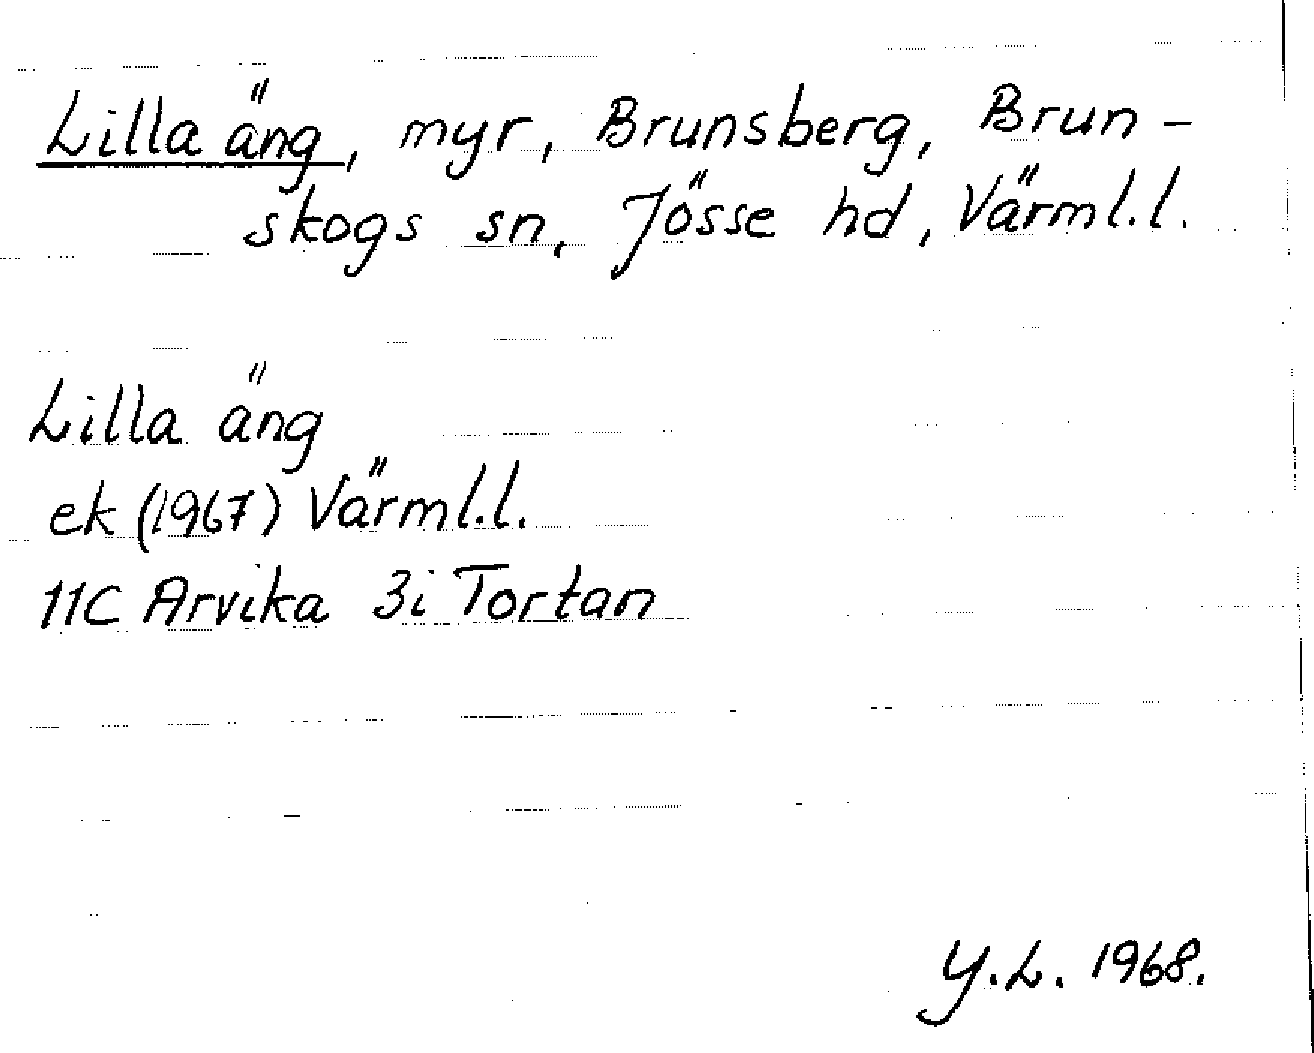 Lilla äng, myr, Brunsberg, Brun-
skogs sn, Jösse hd, Värml.l.
Lilla äng
ek (1967) Värml.l.
11C Arvika 3i Tortan
Y.L. 1968.